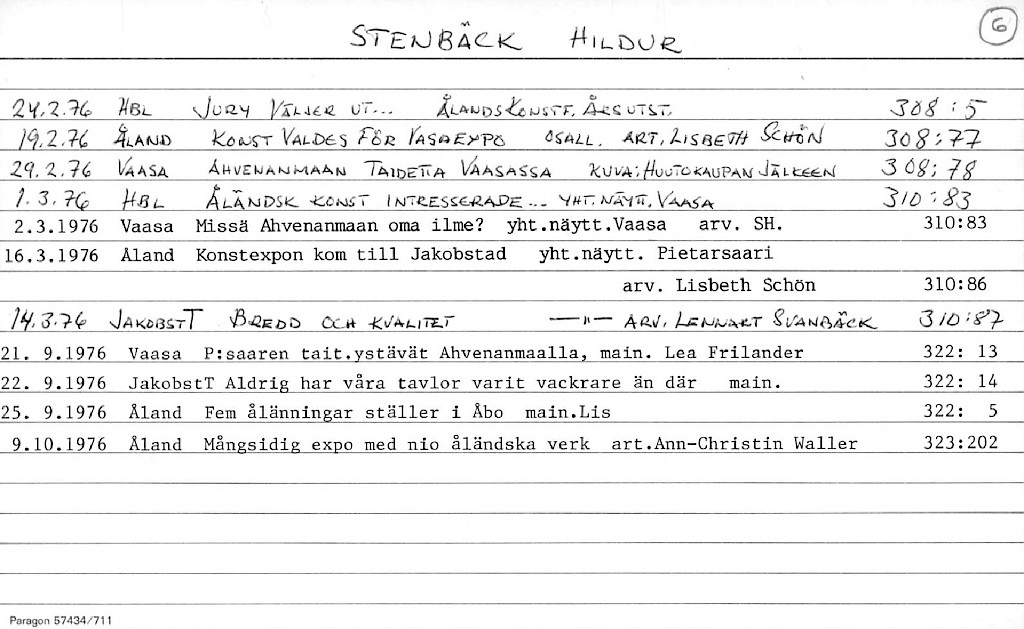 STENBÄCK HILDUR 6
24.2.76 HBL JURY VÄLJER UT... ÅLANDS KONSTF. ÅRSUTST. 308:5
19.2.76 ÅLAND KONST VALDES FÖR VASAEXPO OSALL. ART. LISBETH SCHÖN 308:77
29.2.76 VAASA AHVENANMAAN TAIDETTA VAASASSA KUVA: HUUTOKAUPAN JÄLKEEN 308:78
1.3.76 HBL ÅLÄNDSK KONST INTRESSERADE... YHT.NÄYTT. VAASA 310:83
2.3.1976 Vaasa Missä Ahvenanmaan oma ilme? yht.näytt.Vaasa arv. SH. 310:83
16.3.1976 Åland Konstexpon kom till Jakobstad yht.näytt. Pietarsaari
arv. Lisbeth Schön 310:86
14.3.76 JAKOBSTT BREDD OCH KVALITET —"— ARV. LENNART SVANBÄCK 310:87
21. 9.1976 Vaasa P:saaren tait.ystävät Ahvenanmaalla, main. Lea Frilander 322: 13
22. 9.1976 JakobstT Aldrig har våra tavlor varit vackrare än där main. 322: 14
25. 9.1976 Åland Fem ålänningar ställer i Åbo main.Lis 322: 5
9.10.1976 Åland Mångsidig expo med nio åländska verk art.Ann-Christin Waller 323:202
Paragon 57434/711